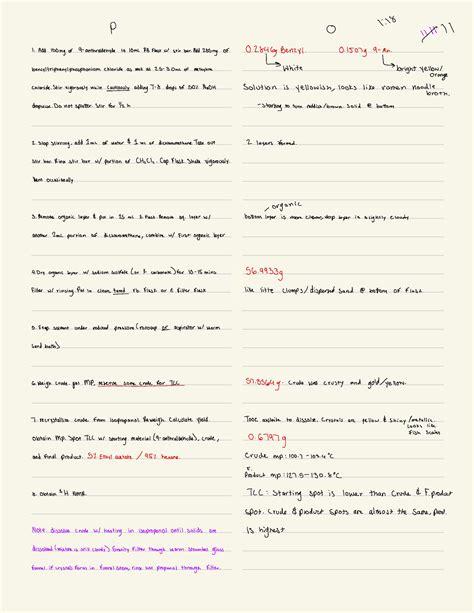 P
O
1. Add 150mg of 9-anthraldehyde to 10mL RB flask w/ stir bar. Add 280mg of
benzyltriphenylphosphonium chloride as well as 2.5-3.0mL of methylene
chloride. Stir vigorously while cautiously adding 7-8 drops of 50% NaOH
dropwise. Do not splatter. Stir for ½ h
0.2846g Benzyl
0.1507g 9-An.
White
bright yellow/
orange
Solution is yellowish, looks like ramen noodle
broth.
- Starting to turn reddish/brown sand @ bottom
2. Stop stirring. add 2mL of water & 1mL of dichloromethane. Take out
stir bar. Rinse stir bar w/ portion of CH2Cl2. Cap flask. Shake vigorously.
Vent occasionally
2 layers formed.
3. Remove organic layer & put in 25 mL E. flask. Remove aq. layer w/
another 2mL portion of dichloromethane, combine w/ first organic layer
organic
bottom layer is more clear, top layer is slightly cloudy
4. Dry organic layer w/ sodium sulfate (or K carbonate) for 10-15 mins
Filter w/ rinsing. Put in clean tared Rb. Flask or E filter Flask
56.9933g
like little clumps/dispersed sand @ bottom of flask
5. Evap solvent under reduced pressure (rotovap or aspirator w/ warm
sand bath)
6. Weigh crude. get MP. reserve some crude for TLC
57.8364g
Crude was crusty and gold/yellow.
7. recrystallize crude from isopropanol. Reweigh. Calculate yield.
Obtain MP. Spot TLC w/ starting material (9-anthraldehyde), crude,
and final product. 5% Ethyl acetate / 95% hexane.
Took awhile to dissolve. Crystals are yellow & shiny/metallic.
looks like
fish scales
0.6797g
Crude mp: 100.7-103.4°c
F.
Product mp: 127.5-130.8°c
8. Obtain ¹H NMR.
TLC: Starting spot is lower than Crude & F.product
spot. Crude & product spots are almost the same, prod.
is highest
Note: dissolve crude w/ heating in isopropanol until solids are
dissolved (water is still cloudy) Gravity Filter through warm stemless glass
funnel. if crystals form in funnel stem, rinse hot propanol through filter.